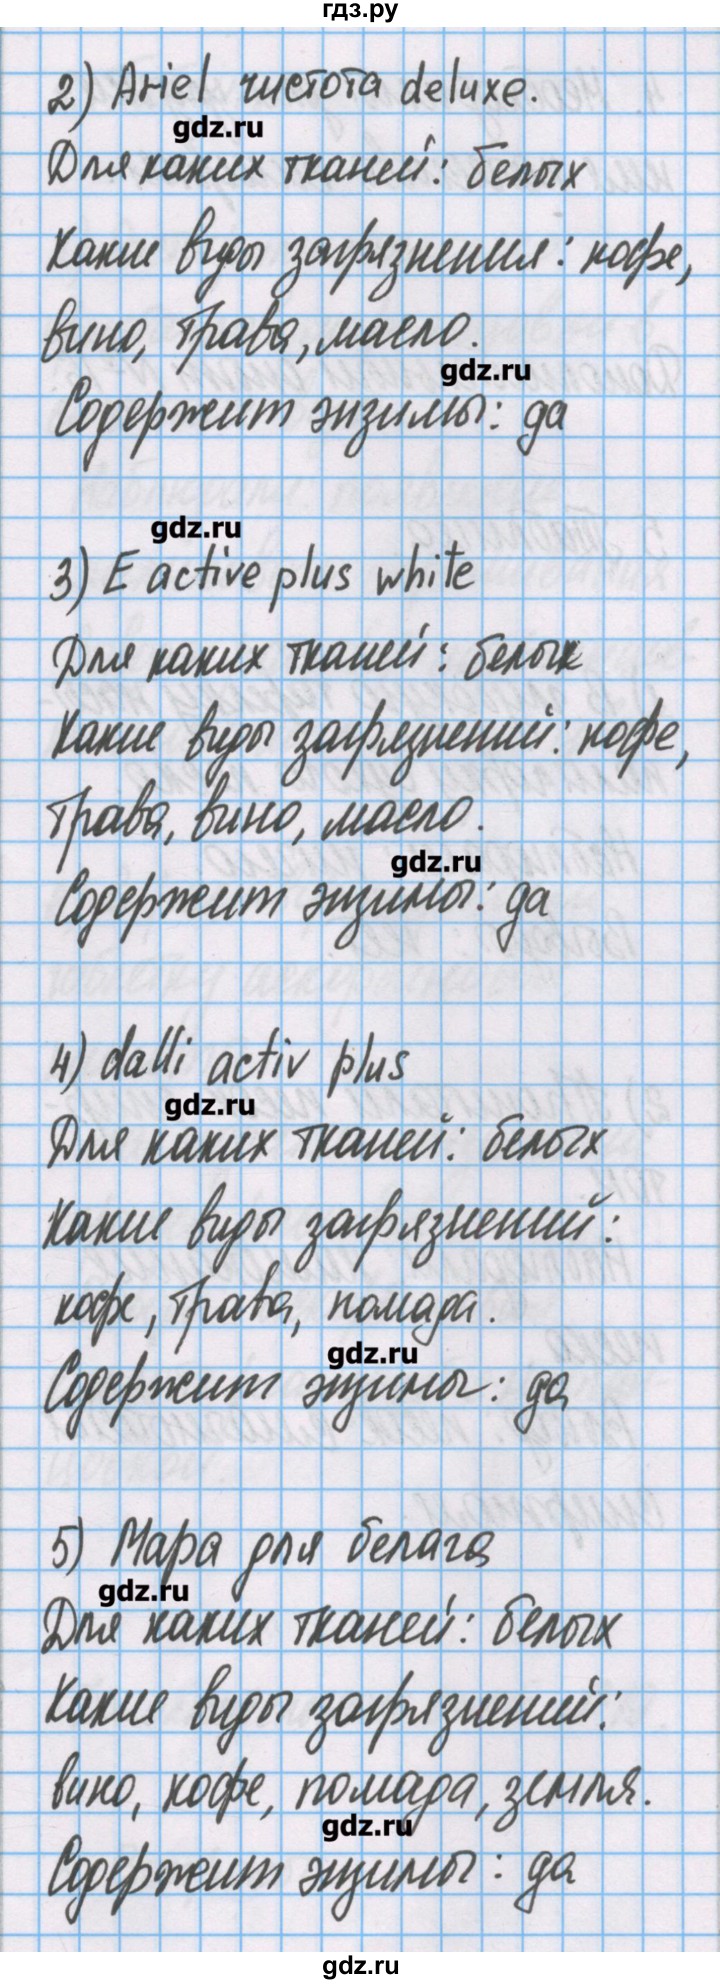 гдз.ру
2) Ariel чистота deluxe.
gdz.ru
Для каких тканей: белых
Какие виды загрязнения: кофе,
вино, трава, масло.
gdz.ru
Содержит энзимы: да
gdz.ru
3) E active plus white
Для каких тканей: белых
Какие виды загрязнений: кофе,
трава, вино, масло.
gdz.ru
Содержит энзимы: да
4) dalli activ plus
gdz.ru
Для каких тканей: белых
Какие виды загрязнений:
кофе, трава, помада.
gdz.ru
Содержит энзимы: да
5) Мара для белага
gdz.ru
Для каких тканей: белых
Какие виды загрязнений:
вино, кофе, помада, земля.
gdz.ru
Содержит энзимы: да
gdz.ru